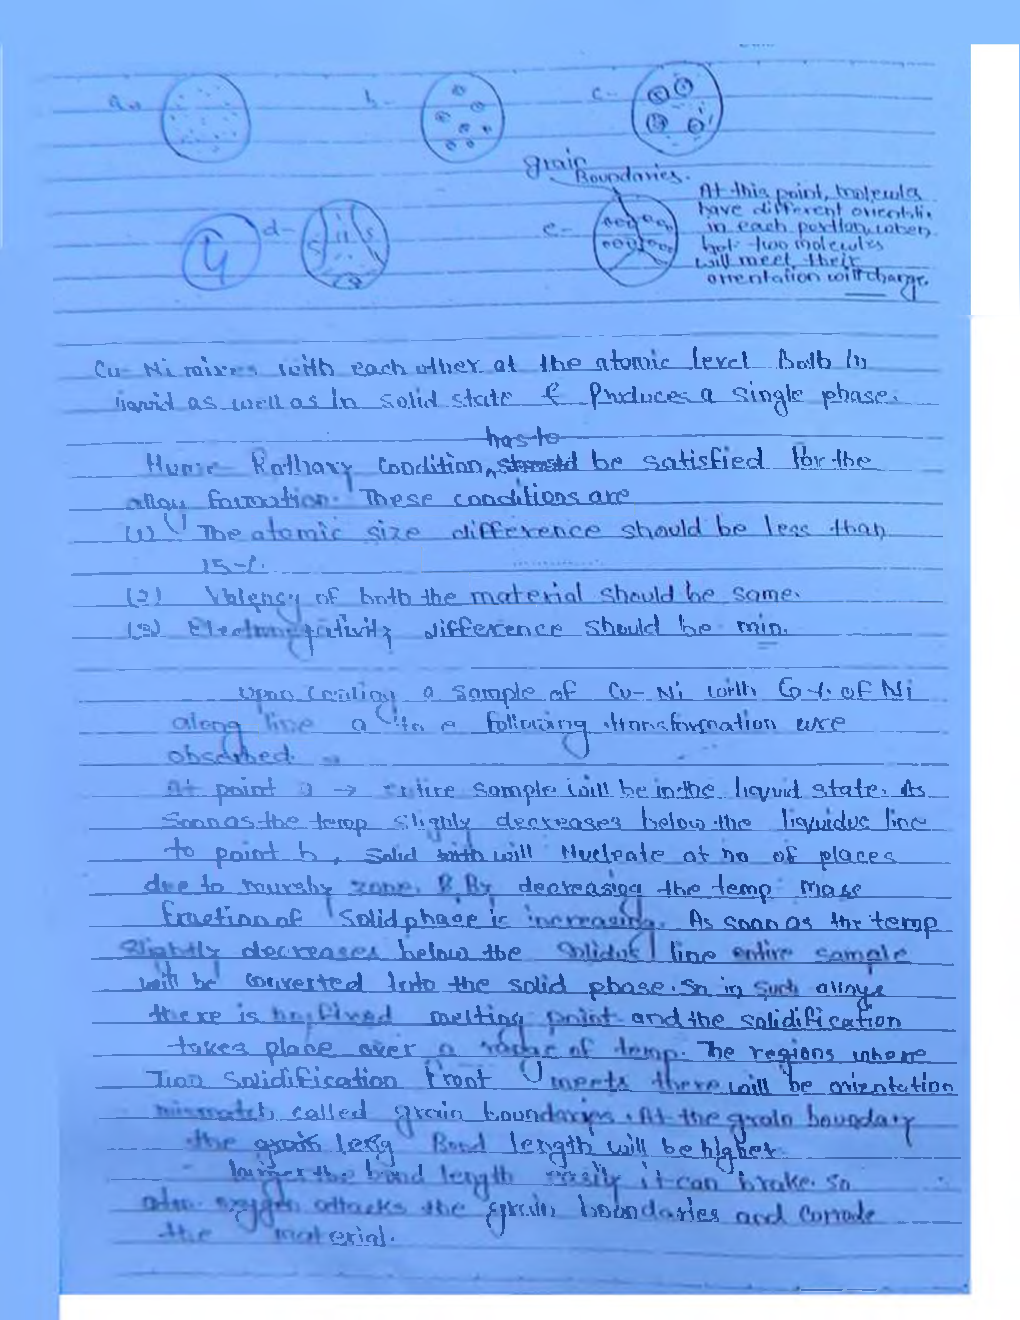 a-
b-
c-
grain
Boundaries.
At this point, molecules
have different orientati.
in each portion, when
two molecules
will meet their
orientation will change.
d-
e-
4
Cu-Ni mixes with each other at the atomic level Both in
liquid as well as in solid state & Produces a single phase.
has to
Hume-Rothary condition, should be satisfied for the
alloy formation. These conditions are
(1) The atomic size difference should be less than
15%.
(2) Valency of both the material should be same.
(3) Electronegativity difference should be min.
Upon cooling a sample of Cu-Ni with of Ni
along line a to e following transformation are
observed.
At point a → entire sample will be in the liquid state. As
soon as the temp slightly decreases below the liquidus line
to point b, solid with will Nucleate at no of places
due to murshy zone. By decreasing the temp mass
fraction of solid phase is increasing. As soon as the temp
slightly decreases below the solidus line entire sample
will be converted into the solid phase. So in such alloys
there is no fixed melting point and the solidification
takes place over a range of temp. The regions where
Two solidification front meets there will be orientation
mismatch called grain boundaries. At the grain boundary
the grain leng Bond length will be higher
larger the bond length easily it can brake. So
atm. oxygen attacks the grain boundaries and corrode
the material.